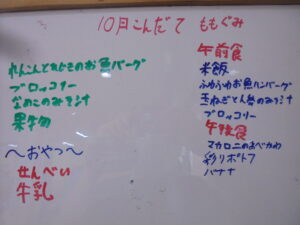 10月こんだて ももぐみ
れんこんとひじきのお魚バーグ
ブロッコリー
なめこのみそ汁
果物
〜おやつ〜
せんべい
牛乳
午前食
米飯
ふわふわお魚ハンバーグ
玉ねぎとん巻のみそ汁
ブロッコリー
午後食
マカロニのあべかわ
彩りポトフ
バナナ